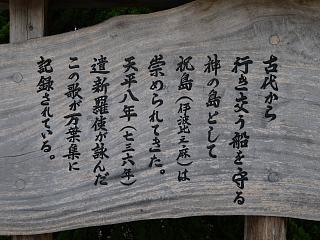 古代から
行き交う船を守る
神の島として
祝島（伊波比之麻）は
崇められてきた。
天平八年（七三六年）
遣新羅使が詠んだ
この歌が万葉集に
記録されている。